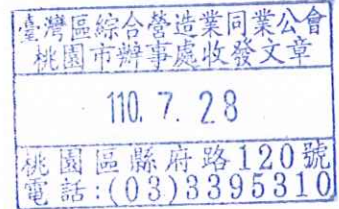 臺灣區綜合營造業同業公會
桃園市辦事處收發文章
110. 7. 28
桃園區縣府路120號
電話:(03)3395310